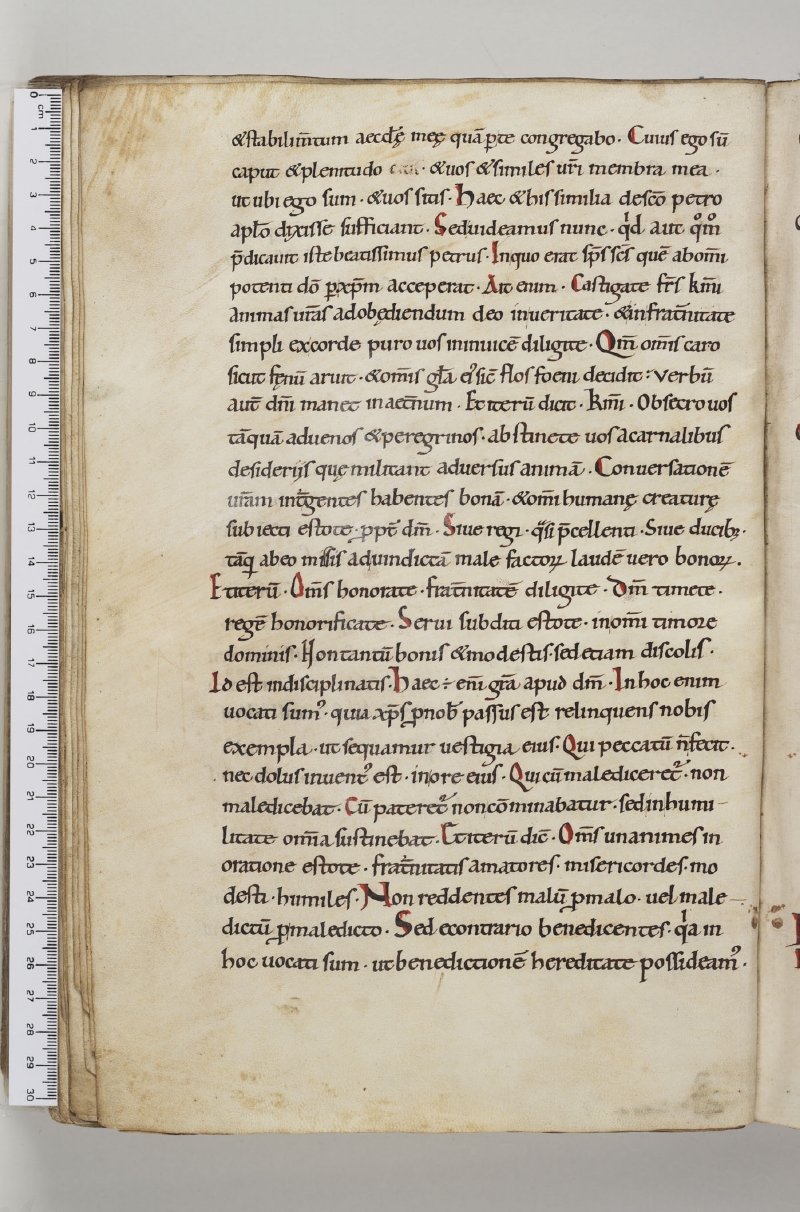 &stabilim̅tum aecclȩ̄ meȩ quā ꝑte congregabo. Cuius ego sū
caput &plenitudo · &uos &similes ur̄i membra mea ·
ut ubi ego sum · &uos sitis · Haec &his similia desc̄o petro
apl̄o dixisse sufficiant · Sed uideamus nunc · qd aut qm̄o
p̄dicauit iste beatissimus petrus · Inquo erat sp̄s sc̄s quē abom̄i
potenti dō ꝑ xp̄m acceperat · Ait enim · Castigate fr̄s km̄i
animas ur̄as adobȩdiendum deo inueritate · &infrat̄nitate
simpli excorde puro uos inuicē diligite · Qm̄ om̄is caro
sicut fȩnū aruit · &om̄is gl̄a ei᾿ sic̄ flos foeni decidit : verbū
aut̄ dm̄i manet in aet̄num · Et iterū dicit · Km̄i · Obsecro uos
tāquā aduenos &peregrinos · abstinete uos acarnalibus
desiderijs quȩ militant aduersus animā · Conuersationē
ur̄am int̄gentes habentes bonā · &om̄i humanȩ creaturȩ
subiecti estote · ꝓpt̄ dm̄ · Siue regi · qsi p̄cellenti · Siue ducibꝫ ·
tāq abeo missis aduindictā male factoꝝ laudē uero bonoꝝ .
Et iterū · Om̄s honorate · frat̄nitatē diligite · Dm̄ timete ·
regē honorificate · Serui subditi estote · inom̄i timore
dominis · Non tantū bonis &modestis · sed etiam discolis ·
Id est indisciplinatis · Haec ÷ eni̅ gr̄a apud dm̄ · In hoc enim
uocati sum᾿ · quia xp̄s ꝓ nob̄ passus est relinquens nobis
exempla · ut sequamur uestigia eius · Qui peccatū n̄ fecit ·
nec dolus inuent᾿ est · inore eius · Qui cū malediceret᾿ · non
maledicebat · Cū pateret᾿ non cōminabatur · sed inhumi
litate om̄ia sustinebat · Et iterū dic̄ · Om̄s unanimes in
oratione estote · frat̄nitatis amatores · misericordes · mo
desti · humiles · Non reddentes malū ꝓ malo · uel male
dictū ꝓ maledicto · Sed econtrario benedicentes · qa in
hoc uocati sum · ut benedictionē hereditate possideam᾿ ·